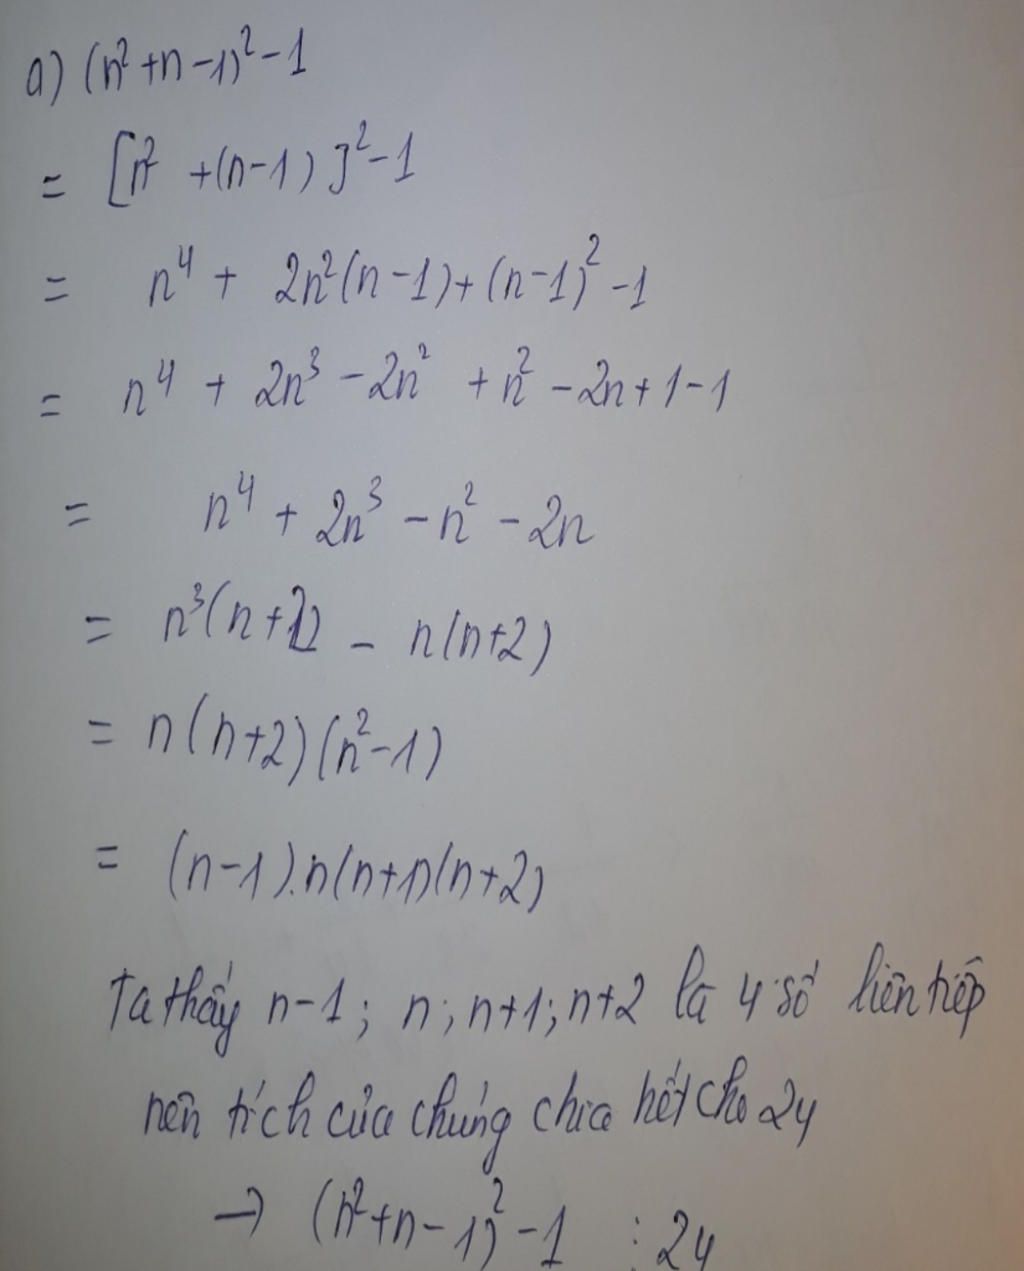 a) (n²+n-1)²-1
= [n² +(n-1)]²-1
= n⁴ + 2n²(n-1)+(n-1)²-1
= n⁴ + 2n³ -2n² +n² -2n+1-1
= n⁴ + 2n³ -n² -2n
= n³(n+2) - n(n+2)
= n(n+2)(n²-1)
= (n-1).n(n+1)(n+2)
Ta thấy n-1; n; n+1; n+2 là 4 số liên tiếp
nên tích của chúng chia hết cho 24
→ (n²+n-1)²-1 ⋮ 24